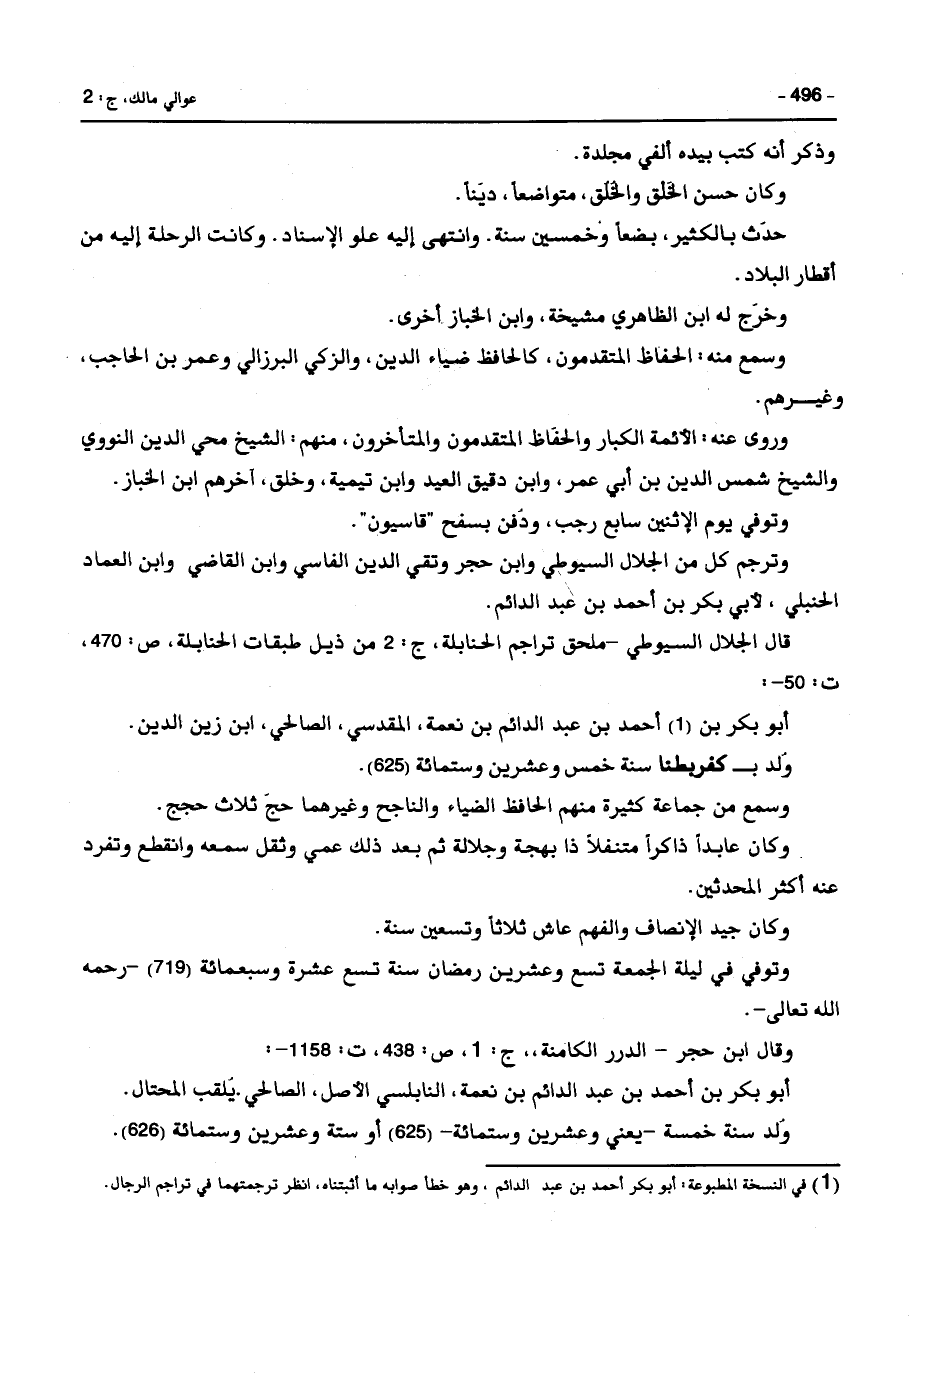 - 496 -
عوالي مالك، ج: 2
وذكر أنه كتب بيده ألفي مجلدة.
وكان حسن الخَلق والخُلق، متواضعاً، ديّناً.
حدّث بالكثير، بضعاً وخمسين سنة. وانتهى إليه علو الإسناد. وكانت الرحلة إليه من
أقطار البلاد.
وخرّج له ابن الظاهري مشيخة، وابن الخباز أخرى.
وسمع منه: الحفاظ المتقدمون، كالحافظ ضياء الدين، والزكي البرزالي وعمر بن الحاجب،
وغيـــرهم.
وروى عنه: الأئمة الكبار والحفّاظ المتقدمون والمتأخرون، منهم: الشيخ محي الدين النووي
والشيخ شمس الدين بن أبي عمر، وابن دقيق العيد وابن تيمية، وخلق، آخرهم ابن الخباز.
وتوفي يوم الإثنين سابع رجب، ودُفن بسفح "قاسيون".
وترجم كل من الجلال السيوطي وابن حجر وتقي الدين الفاسي وابن القاضي وابن العماد
الحنبلي ، لأبي بكر بن أحمد بن عبد الدائم.
قال الجلال السيوطي –ملحق تراجم الحنابلة، ج: 2 من ذيل طبقات الحنابلة، ص: 470،
ت: 50–:
أبو بكر بن (1) أحمد بن عبد الدائم بن نعمة، المقدسي، الصالحي، ابن زين الدين.
وُلد بـــ كفربطنا سنة خمس وعشرين وستمائة (625).
وسمع من جماعة كثيرة منهم الحافظ الضياء والناجح وغيرهما حجّ ثلاث حجج.
وكان عابداً ذاكراً متنفلاً ذا بهجة وجلالة ثم بعد ذلك عمي وثقل سمعه وانقطع وتفرد
عنه أكثر المحدثين.
وكان جيد الإنصاف والفهم عاش ثلاثاً وتسعين سنة.
وتوفي في ليلة الجمعة تسع وعشرين رمضان سنة تسع عشرة وسبعمائة (719) –رحمه
الله تعالى–.
وقال ابن حجر – الدرر الكامنة،، ج: 1، ص: 438، ت: 1158–:
أبو بكر بن أحمد بن عبد الدائم بن نعمة، النابلسي الأصل، الصالحي.يُلقب المحتال.
وُلد سنة خمسة –يعني وعشرين وستمائة– (625) أو ستة وعشرين وستمائة (626).
(1) في النسخة المطبوعة: أبو بكر أحمد بن عبد الدائم ، وهو خطأ صوابه ما أثبتناه، انظر ترجمتهما في تراجم الرجال.